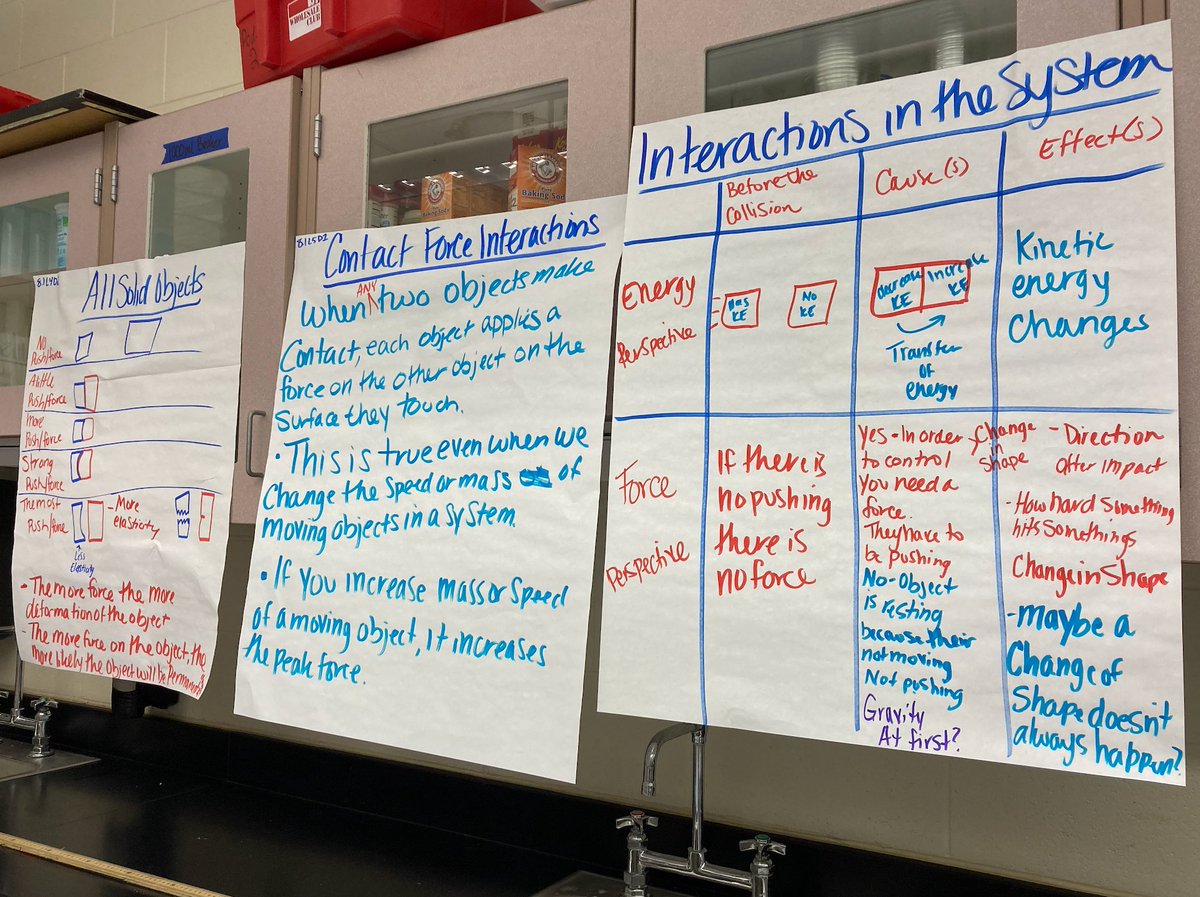 WHOLESALE
CLUB
1000ml Beaker
ARM & HAMMER
Baking Soda
All Solid Objects
No
Push/force
A little
Push/force
More
Push/force
Strong
Push/force
The most
Push/force
- More
elasticity
Less
Elasticity
- The more force the more
deformation of the object
- The more force on the object, the
more likely the object will be
8.1L5D2
Contact Force Interactions
When ANY two objects make
Contact, each object applies a
force on the other object on the
surface they touch.
• This is true even when we
change the speed or mass of
moving objects in a system.
• If you increase mass or speed
of a moving object, it increases
the peak force.
Interactions in the System
Before the
Collision
Cause(s)
Effect(s)
Energy
Perspective
Has
KE
No
KE
decrease
KE
Increase
KE
Transfer
of
energy
Kinetic
energy
Changes
Force
Perspective
If there is
no pushing
there is
no force
Yes - In order
to control
you need a
force.
They have to
be pushing
No - Object
is resting
because their
not moving
Not pushing
Gravity
At first?
Change
in
shape
- Direction
after impact
- How hard something
hits somethings
Change in Shape
- maybe a
Change of
Shape doesn't
always happen?